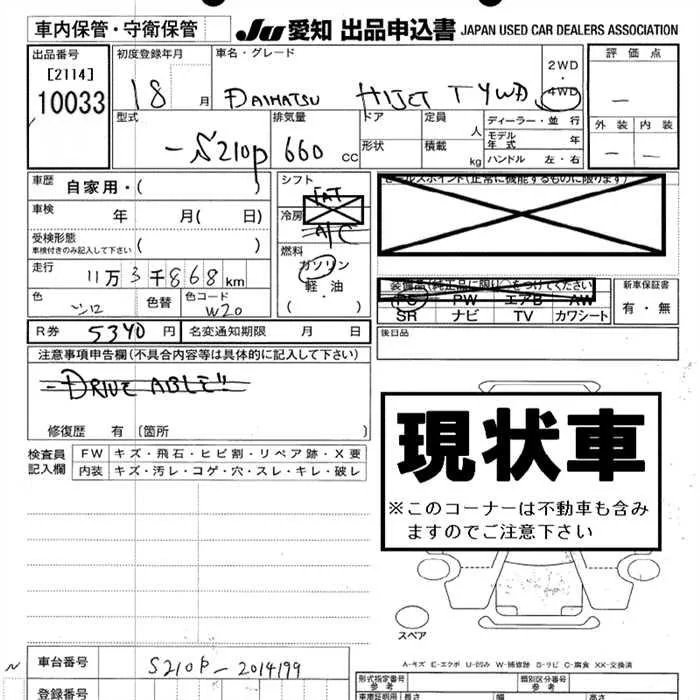 車内保管・守衛保管
JU 愛知 出品申込書 JAPAN USED CAR DEALERS ASSOCIATION
出品番号 初度登録年月 車名・グレード 2WD・4WD 評価点
[2114]
10033 18 月 DAIHATSU HIJET T 4WD －
型式 排気量 ドア 定員 人 ディーラー・並行 外装 内装
－S210P 660 cc 形状 積載 kg モデル年式 年 － －
ハンドル 左・右
車歴 自家用・( ) シフト セールスポイント(正常に機能するものに限ります)
FAT
車検 年 月( 日) 冷房 A/C
受検形態 ( )
車検付きのみ記入して下さい
燃料
走行 11万3千868km ガソリン
軽・油
( )
装備品(純正品に限り○をつけてください) 新車保証書
色 シロ 色替 色コード W20 PS PW エアB AW 有・無
SR ナビ TV カワシート
R券 5340円 名変通知期限 月 日 後日品
注意事項申告欄(不具合内容等は具体的に記入して下さい)
DRIVE ABLE!!
修復歴 有 〔箇所 〕
現状車
※このコーナーは不動車も含み
ますのでご注意下さい
検査員記入欄 FW キズ・飛石・ヒビ割・リペア跡・X要
内装 キズ・汚レ・コゲ・穴・スレ・キレ・破レ
スペア
A-キズ E-エクボ U-凹み W-補修跡 S-リビ C-腐食 XX-交換済
N 車台番号 S210P-2014199
形式指定番号 参考 類別区分番号 参考
登録番号 車庫証明用 長さ 幅 高さ